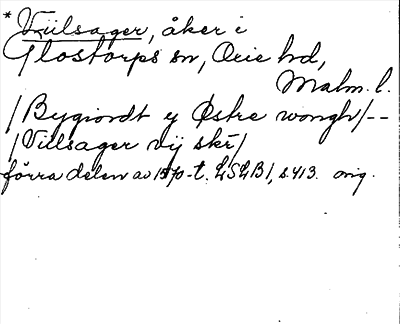 * Viilsager, åker i
Glostorps sn, Oxie hd,
Malm. l.
/Bygiordt ey Østre wongh/--
/Viilsager vij skr/
förra delen av 1570-t. LSLB1, s. 413. orig.